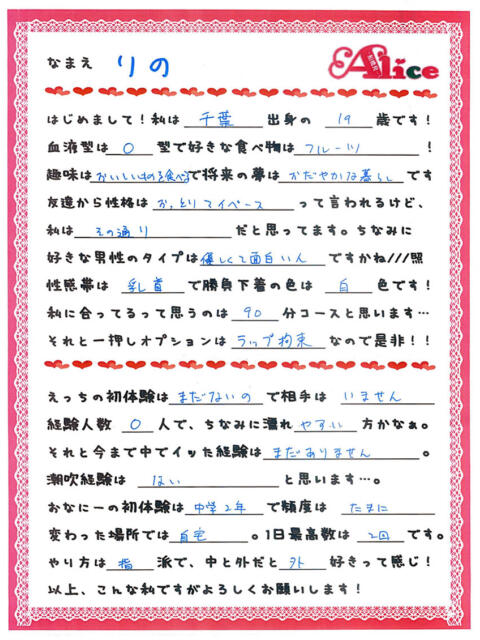 なまえ りの
Alice
はじめまして!私は 千葉 出身の 19 歳です!
血液型は O 型で好きな食べ物は フルーツ !
趣味は おいしいものを食べる で将来の夢は おだやかな暮らし です
友達から性格は おっとりマイペース って言われるけど、
私は その通り だと思ってます。ちなみに
好きな男性のタイプは 優しくて面白い人 ですかね///照
性感帯は 乳首 で勝負下着の色は 白 色です!
私に合ってるって思うのは 90 分コースと思います…
それと一押しオプションは ラップ拘束 なので是非!!
えっちの初体験は まだないの で相手は いません
経験人数 0 人で、ちなみに濡れ やすい 方かなぁ。
それと今まで中でイッた経験は まだありません 。
潮吹経験は ない と思います…。
変わった場所では 自宅 。1日最高数は 2回 です。
やり方は 指 派で、中と外だと 外 好きって感じ!
以上、こんな私ですがよろしくお願いします!